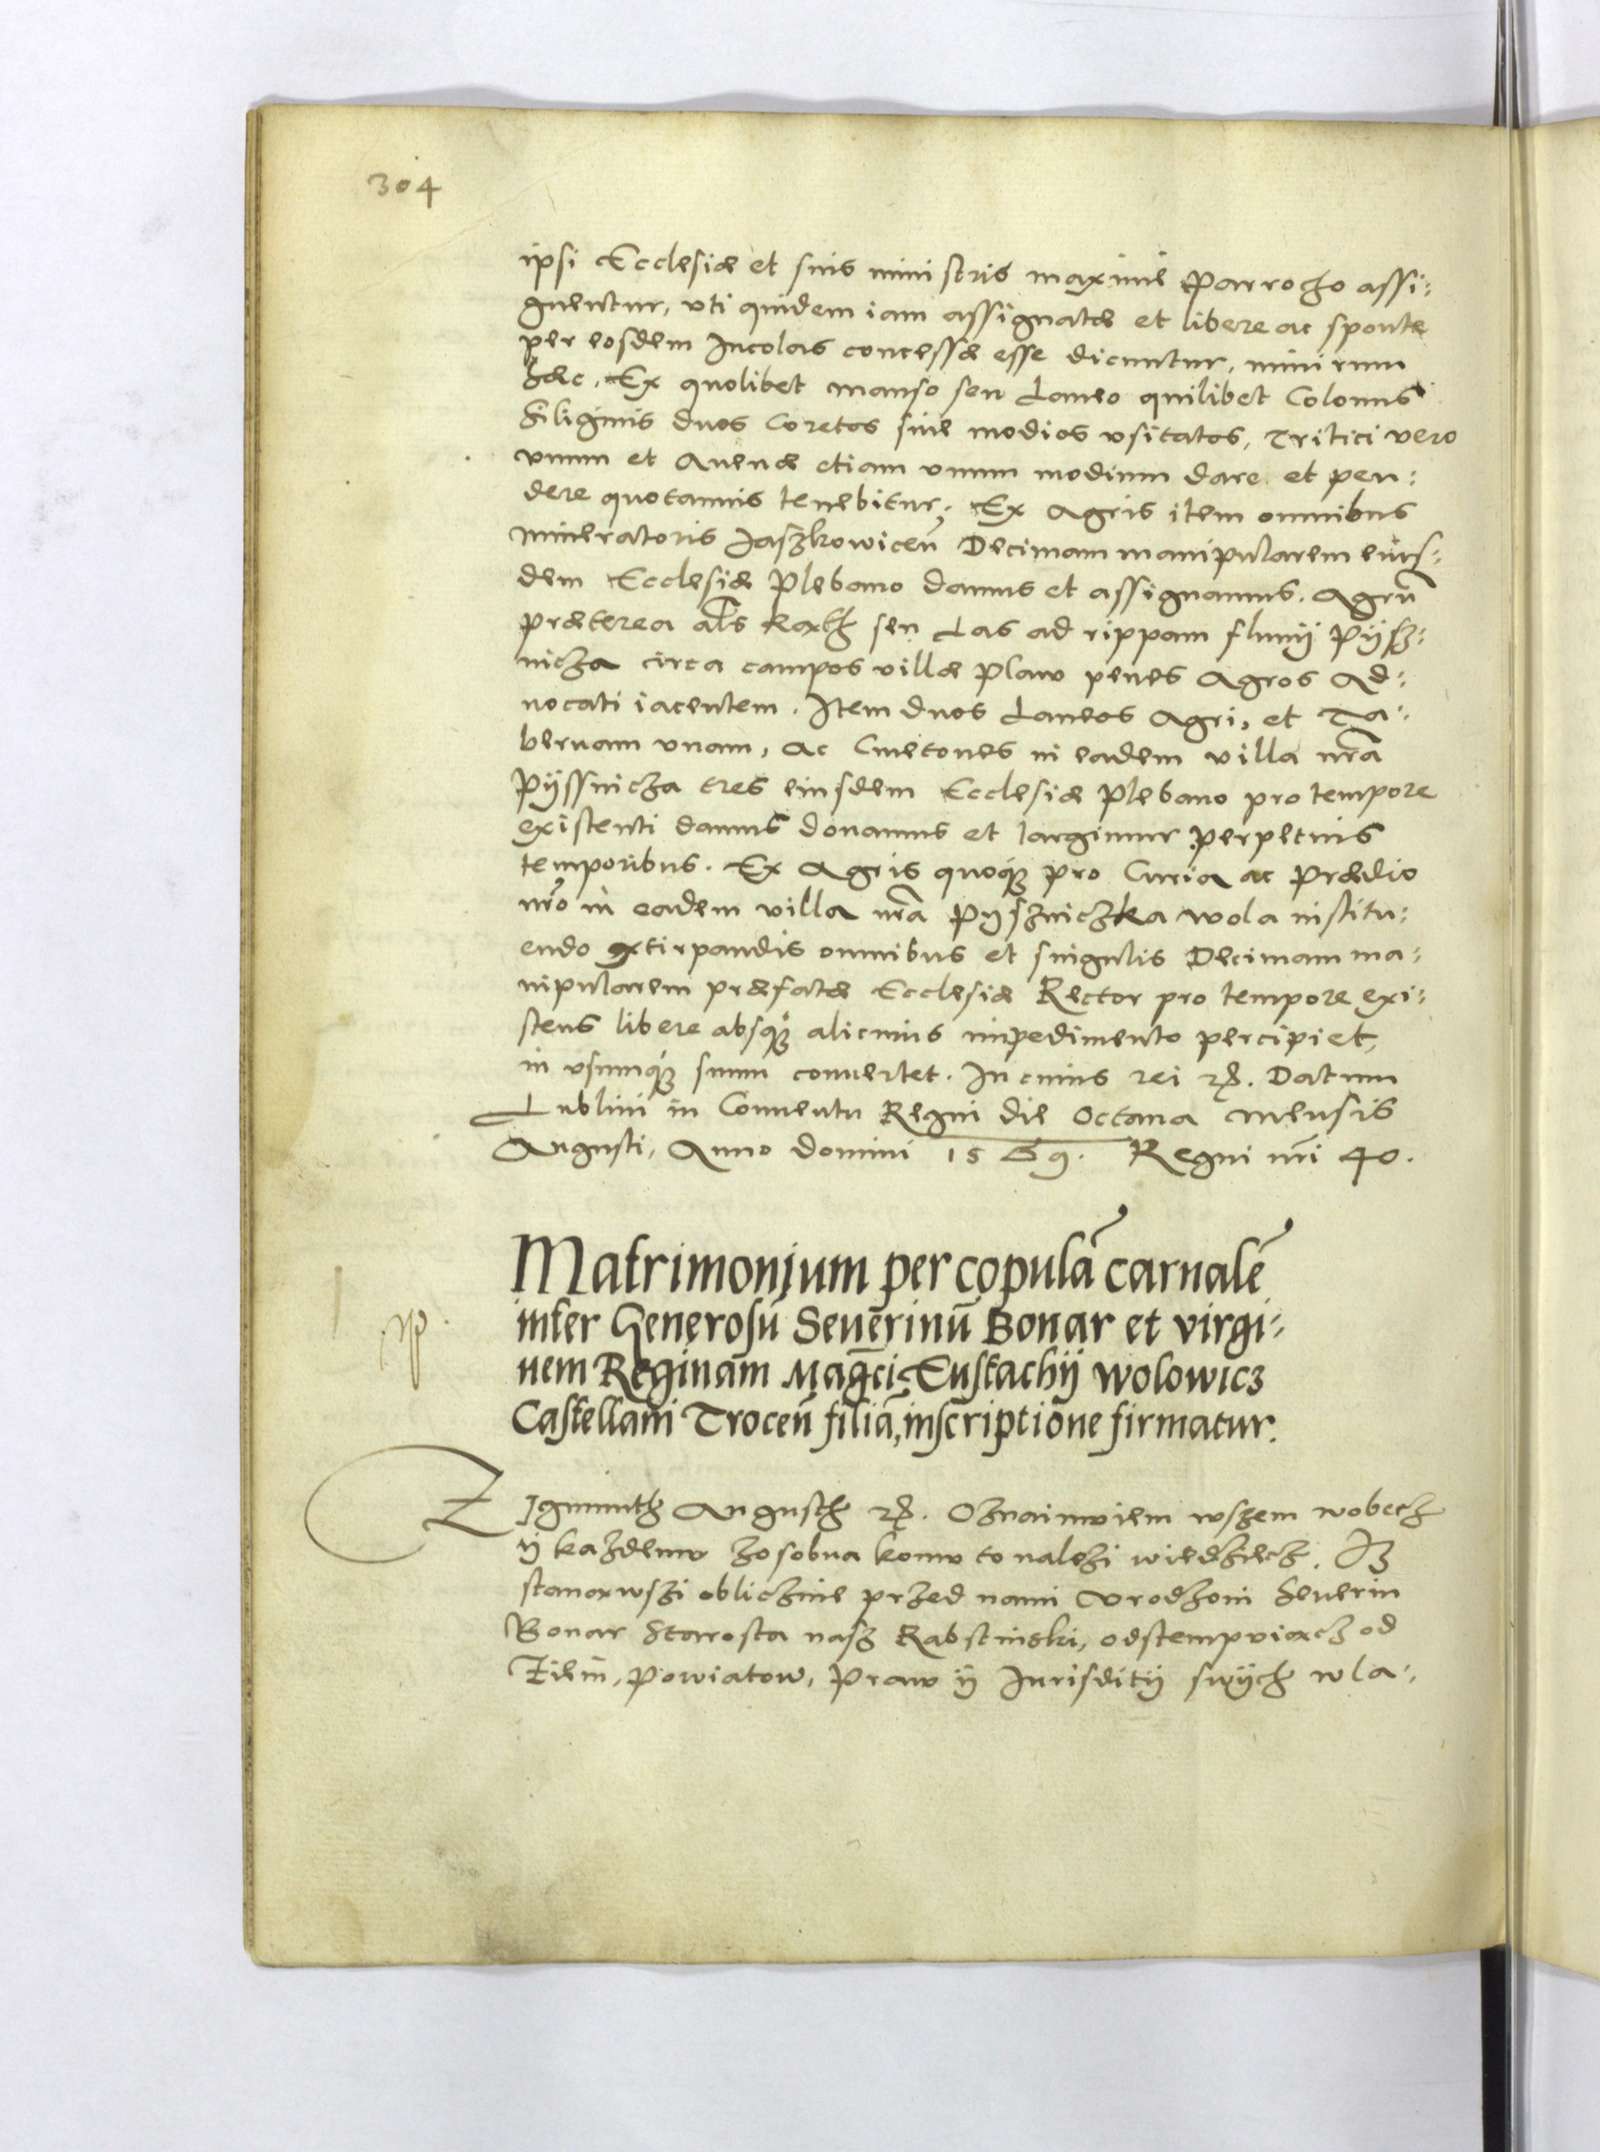 304
ipsi Ecclesiæ et suis ministris maxime Parrocho assi:
gnentur, vti quidem iam assignatæ et libere ac sponte
per eosdem Incolas concessæ esse dicuntur, nimirum
hæc. Ex quolibet manso seu Laneo quilibet Colonus
Siliginis duos Coretos siue modios vsitatos, Tritici vero
vnum et Auenæ etiam vnum modium dare et pen:
dere quotannis tenebitur. Ex Agris item omnibus
mineratoris Jaszkowiceñ Decimam manipularem eius:
dem Ecclesiæ Plebano damus et assignamus. Agrũ
præterea als Kąth seu Las ad rippam fluuij Pÿsz:
nicza circa campos villæ Plaw penes Agros Ad:
uocati iacentem. Item duos Laneos Agri, et Ta:
bernam vnam, ac Cmetones in eadem villa nrã
Pÿssnicza tres eiusdem Ecclesiæ Plebano pro tempore
existenti damus donamus et largimur perpetuis
temporibus. Ex Agris quoqȝ pro Curia ac Prædio
nrõ in eadem villa nrã Pyszniczka wola institu:
endo extirpandis omnibus et singulis Decimam ma:
nipularem præfatæ Ecclesiæ Rector pro tempore exi:
stens libere absqȝ alicuius impedimento percipiet,
in vsumqȝ suum conuertet. In cuius rei &c. Datum
Lublini in Conuentu Regni die Octaua mensis
Augusti, Anno domini 1569. Regni nri 40.
Matrimonium per copulã carnalẽ
inter Generosũ Seuerinũ Bonar et virgi:
nem Reginam Magci Eustachij Wolowicz
Castellani Troceñ filiã, inscriptione firmatur.
Zigmunth Augusth &c. Oznaimuiem wszem wobecz
ÿ kazdemu zosobna komu to nalezi wiedziecz. Iz
stanąwszi oblicznie przed nami Vrodzoni Seuerin
Bonar Starosta nasz Rabstinski, odstempuiącz od
Ziem, Powiatow, Praw ÿ Iurisditij swÿch wla: